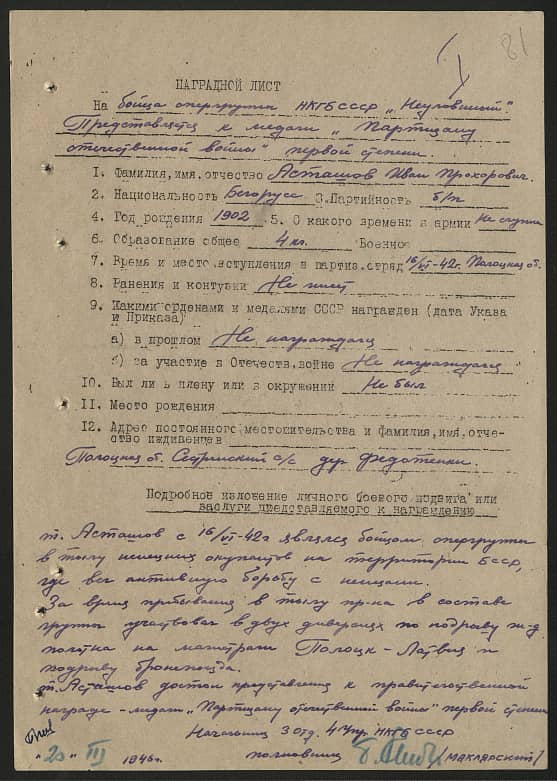 81
НАГРАДНОЙ ЛИСТ
На бойца опергруппы НКГБ СССР „Неуловимый"
Представляется к медали „Партизану
отечественной войны" первой степени.
1. Фамилия,имя,отчество Асташов Иван Прохорович.
2. Национальность Белорусс 3.Партийность б/п
4. Год рождения 1902 5. С какого времени в армии Не служил
6. Образование общее 4 кл. Военное
7. Время и место вступления в партиз.отряд 16/VI-42г. Полоцкая об.
8. Ранения и контузии Не имеет
9. Какими орденами и медалями СССР награжден (дата Указа
и Приказа)
а) в прошлом Не награждался
б) за участие в Отечеств.войне Не награждался
10. Был ли в плену или в окружении Не был
11. Место рождения
12. Адрес постоянного местожительства и фамилия,имя,отче-
ство иждивенцев
Полоцкая об. с/с дер. Федотенки.
Подробное изложение личного боевого подвига или
заслуги представляемого к награждению
т. Асташов с 16/VI-42г являлся бойцом опергруппы
в тылу немецких окупантов на территории БССР,
где вел активную борьбу с немцами.
За время пребывания в тылу пр-ка в составе
группы участвовал в двух диверсиях по подрыву ж-д
полотна на магистрали Полоцк-Латвия и
подрыву бронепоезда.
т. Асташов достоин представления к правительственной
награде - медали „Партизану отечественной войны" первой степени
Начальник 3 отд. 4 Упр. НКГБ СССР
полковник (МАКЛЯРСКИЙ)
"20" III 1945г.